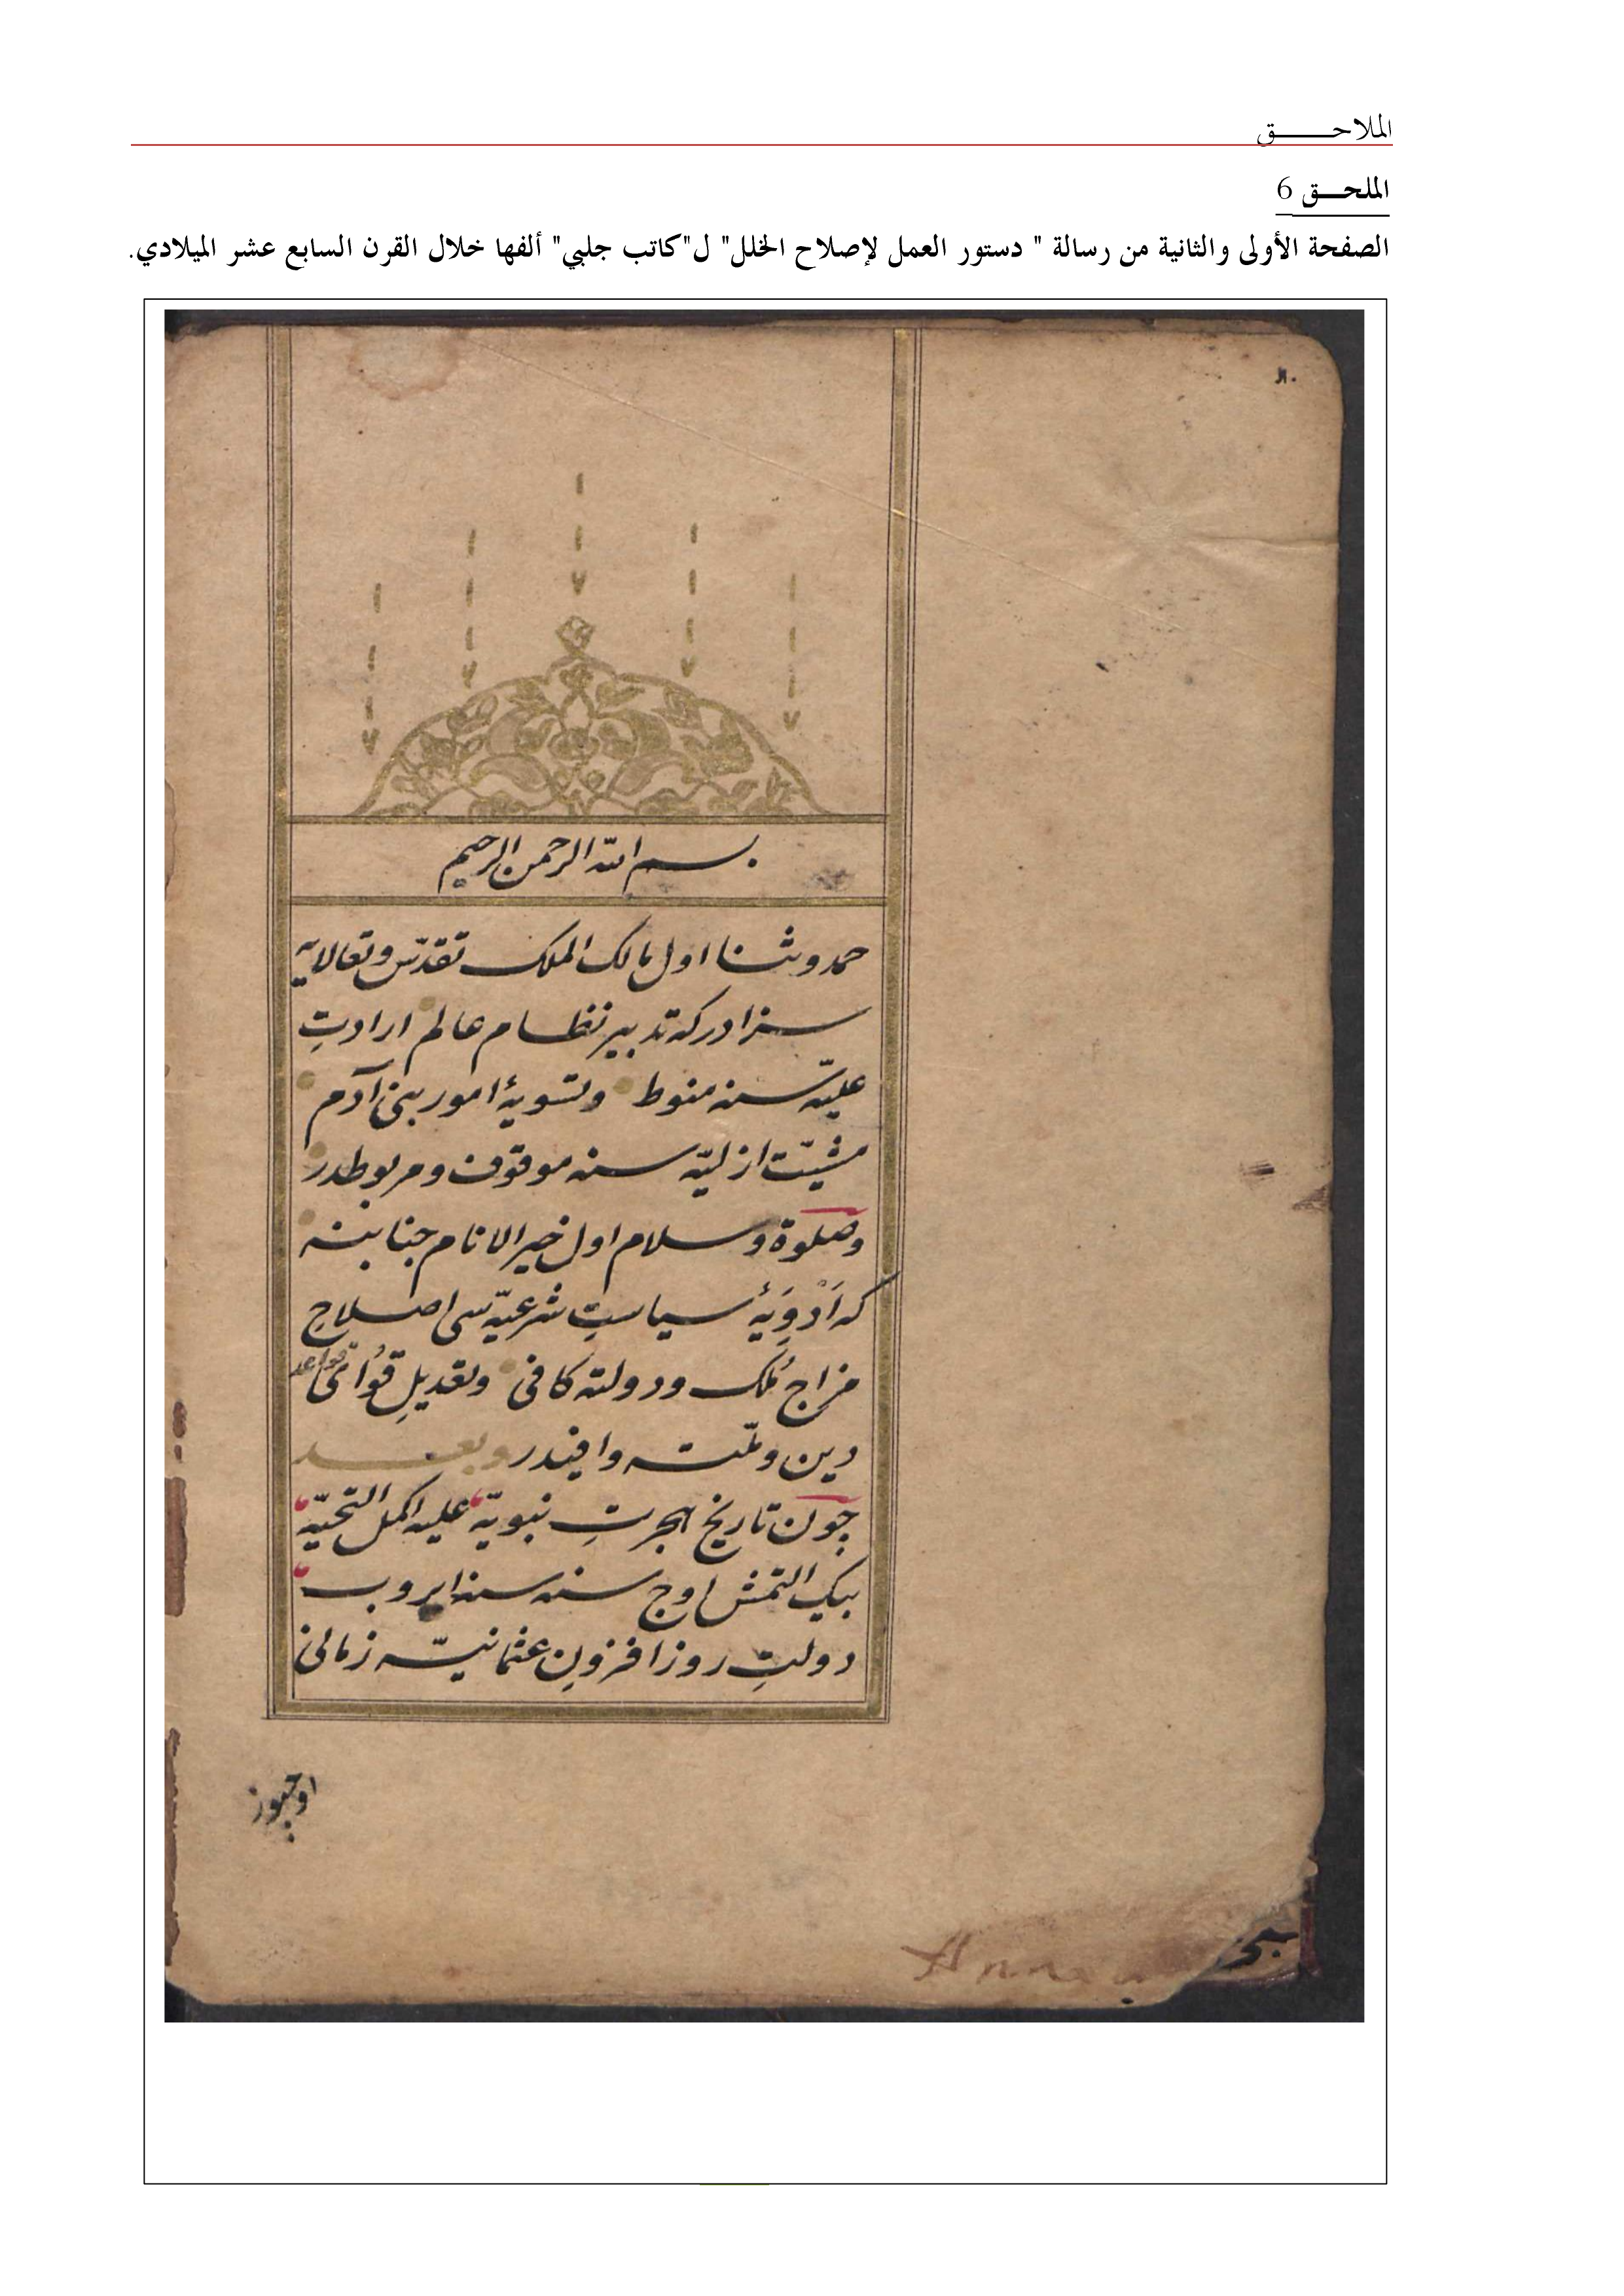 الملاحـــــــق
الملحـــق 6
الصفحة الأولى والثانية من رسالة " دستور العمل لإصلاح الخلل" ل"كاتب جلبي" ألفها خلال القرن السابع عشر الميلادي.
بسم الله الرحمن الرحيم
حمد وثنا اول مالك الملك تقدّس وتعالايه
سزادركه تدبير نظام عالم ارادتِ
عليّه سنه منوط وتسويۀ امور بنى آدم
مشيّت ازليّه سنه موقوف ومربوطدر
وصلوة وسلام اول خير الانام جنابنه
كه اَدْوِيَۀ سياستِ شرعيّه سى اصلاحِ
مزاج مُلك ودولته كافى وتعديلِ قُواى قواعد
دين وملّته وافيدر وبعد
چون تاريخ هجرتِ نبويّه عليه اكمل التحيّه
بيك التمش اوچ سنه سنه ايروب
دولتِ روزافزونِ عثمانيّه زمانى
اوچيوز
Anna